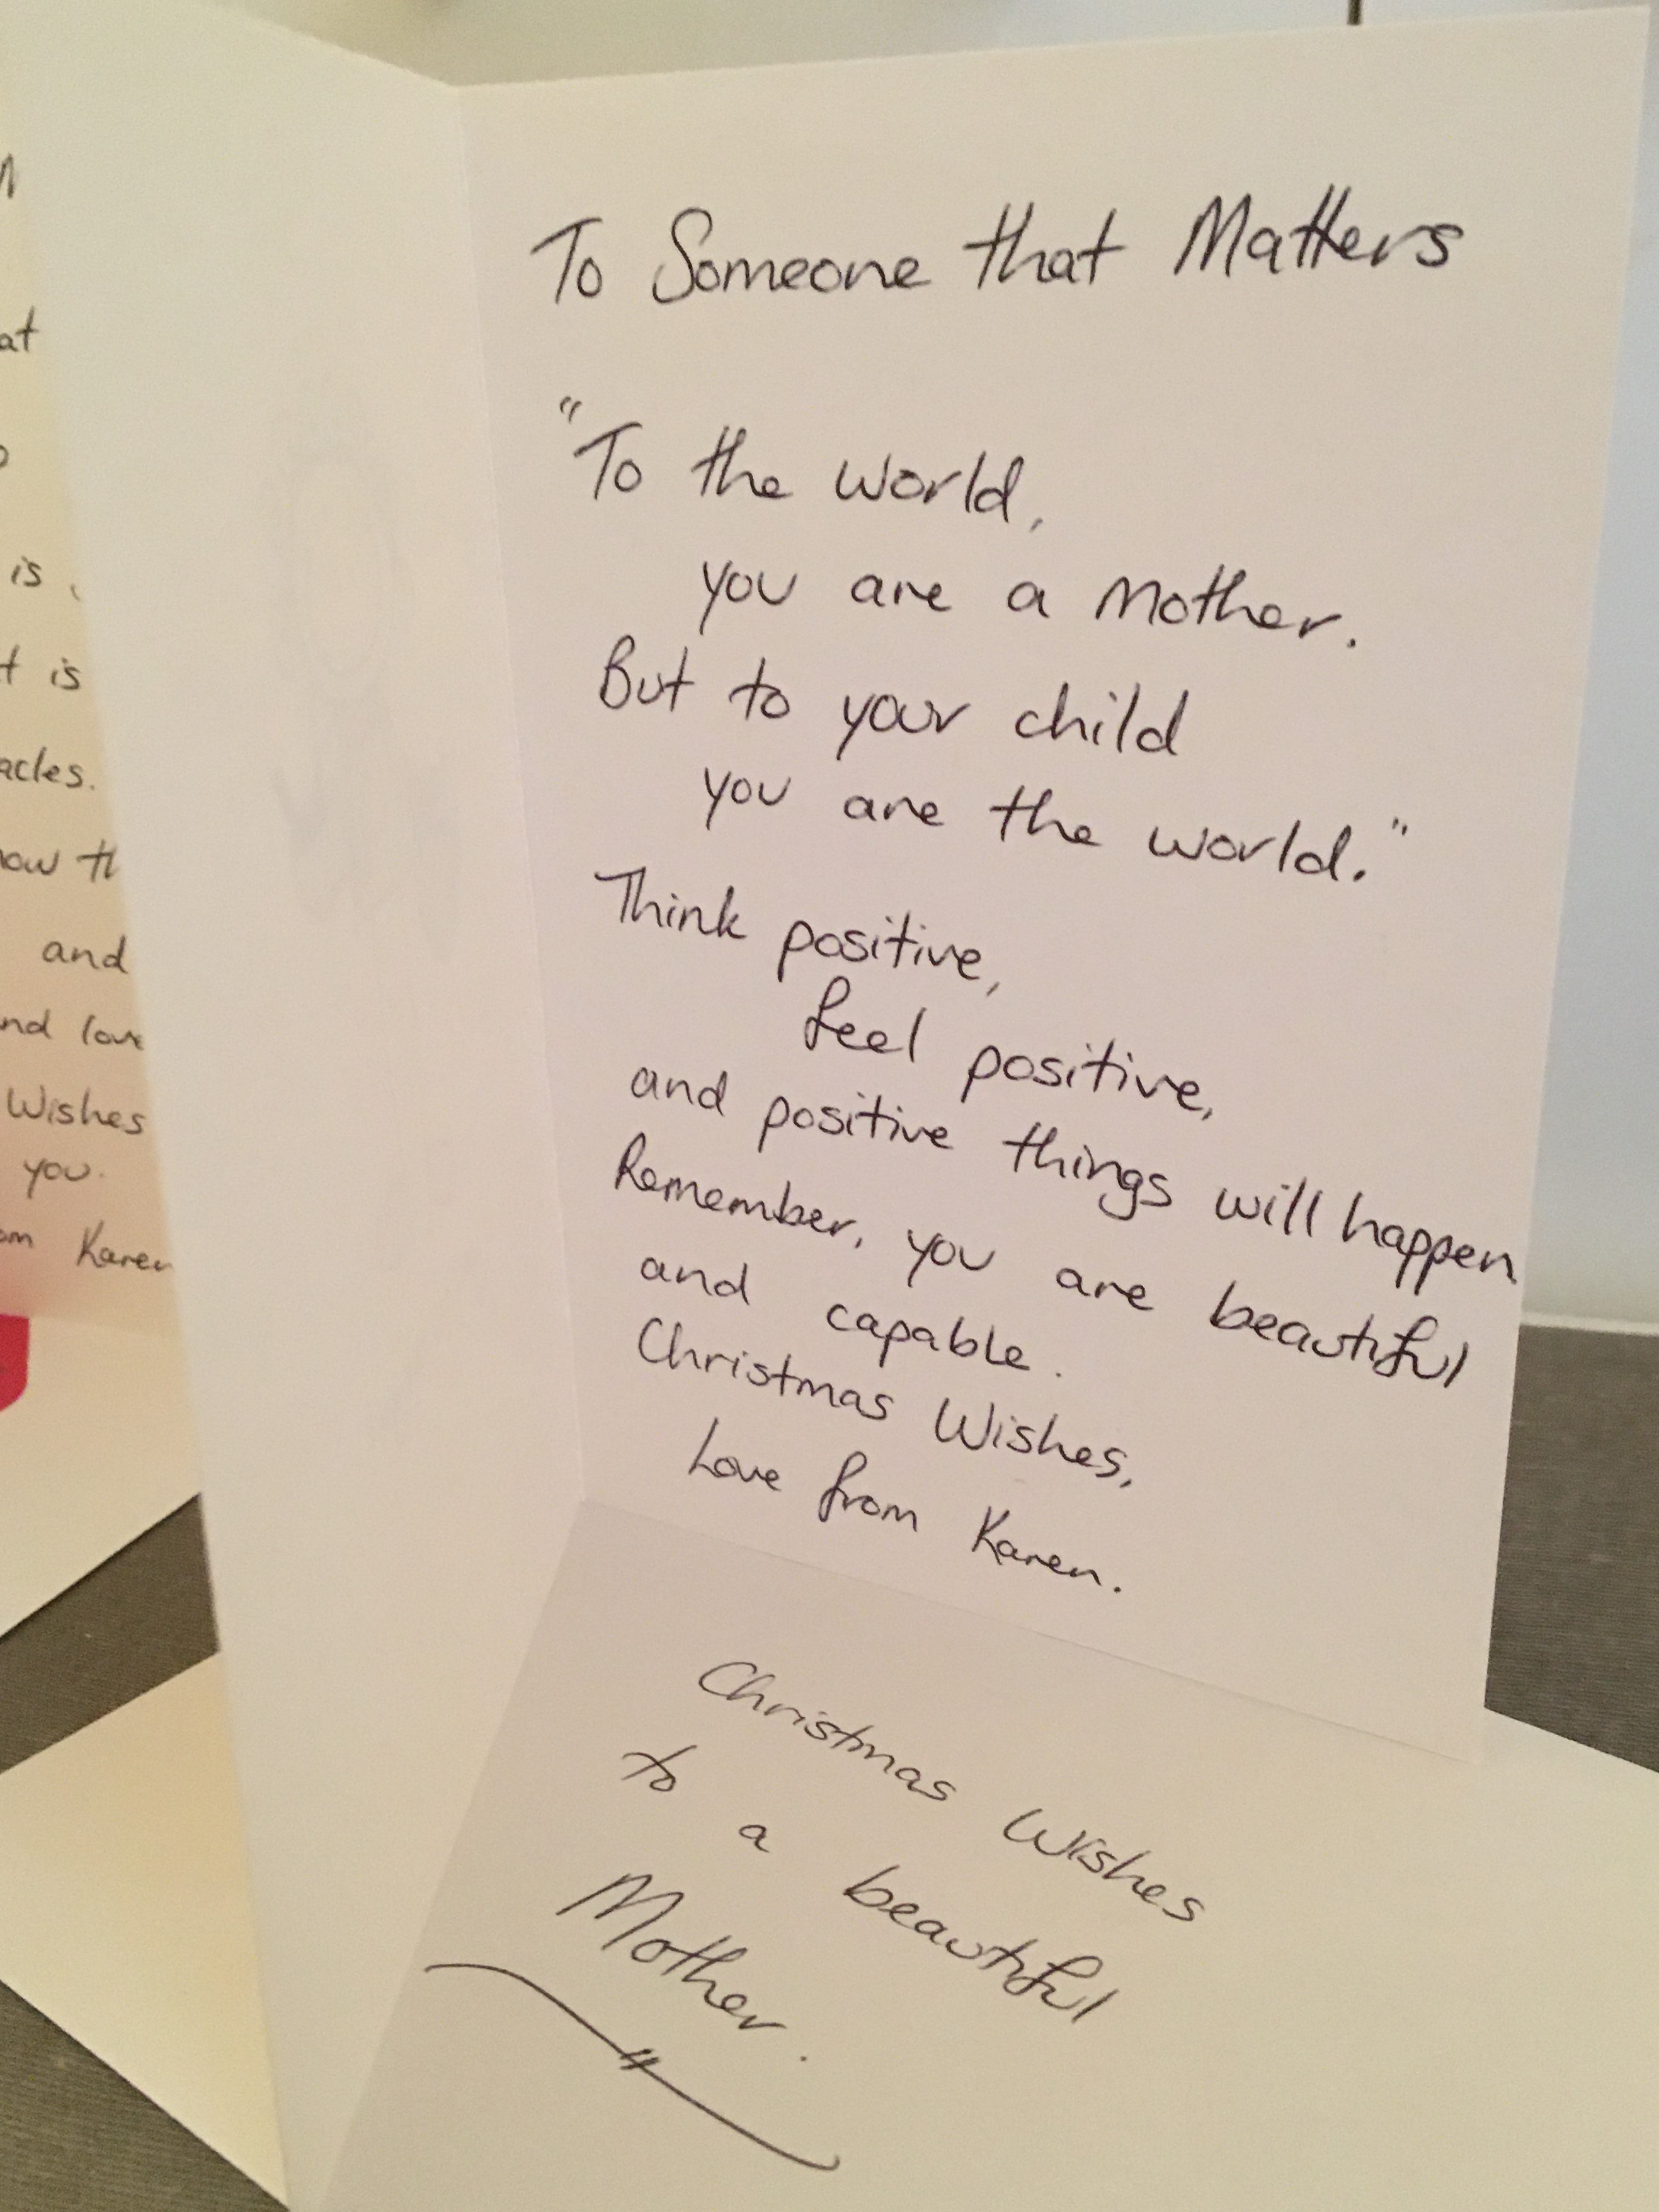 at
is
t is
acles.
now th
and
nd love
Wishes
you.
om Karen
To Someone that Matters
"To the world,
you are a Mother.
But to your child
you are the world."
Think positive,
feel positive,
and positive things will happen
Remember, you are beautiful
and capable.
Christmas Wishes,
Love from Karen.
Christmas Wishes
to a beautiful
Mother.